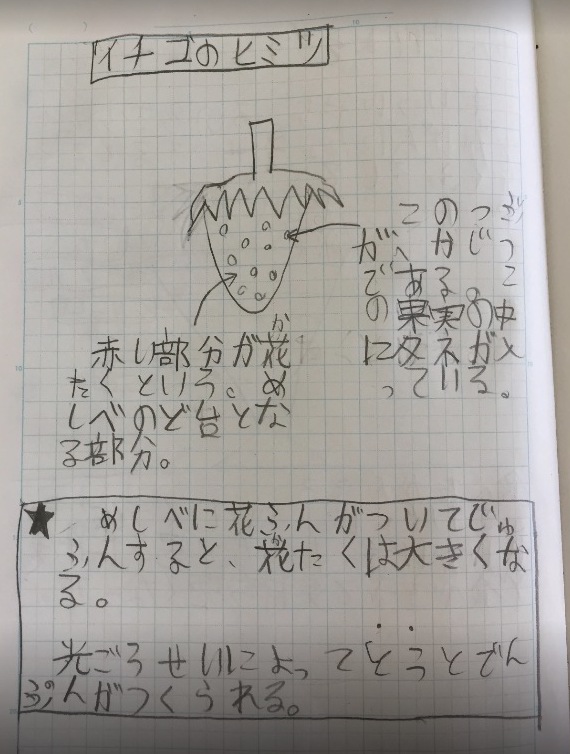 イチゴのヒミツ
このつぶ
が、かじつ
である。こ
の果実の中
にタネが入
っている。
赤い部分が花か
たくという。め
しべのど台とな
る部分。
★ めしべに花ふんがついてじゅ
ふんすると、花かたくは大きくな
る。
光ごうせいによってとうとでん
ぷんがつくられる。